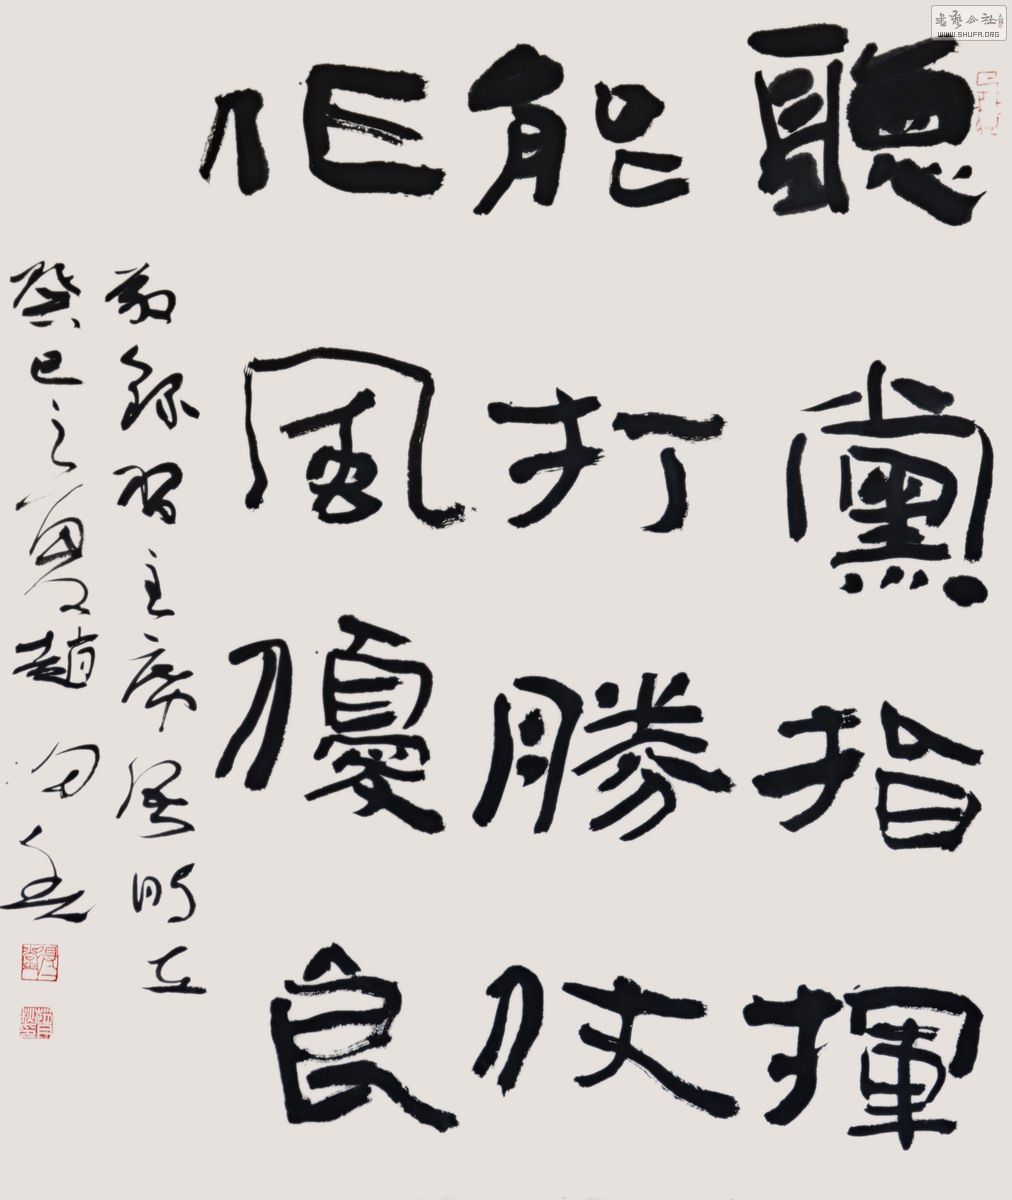 書藝公社
WWW.SHUFA.ORG
聽黨指揮
能打勝仗
作風優良
敬錄習主席時在
癸巳之夏趙